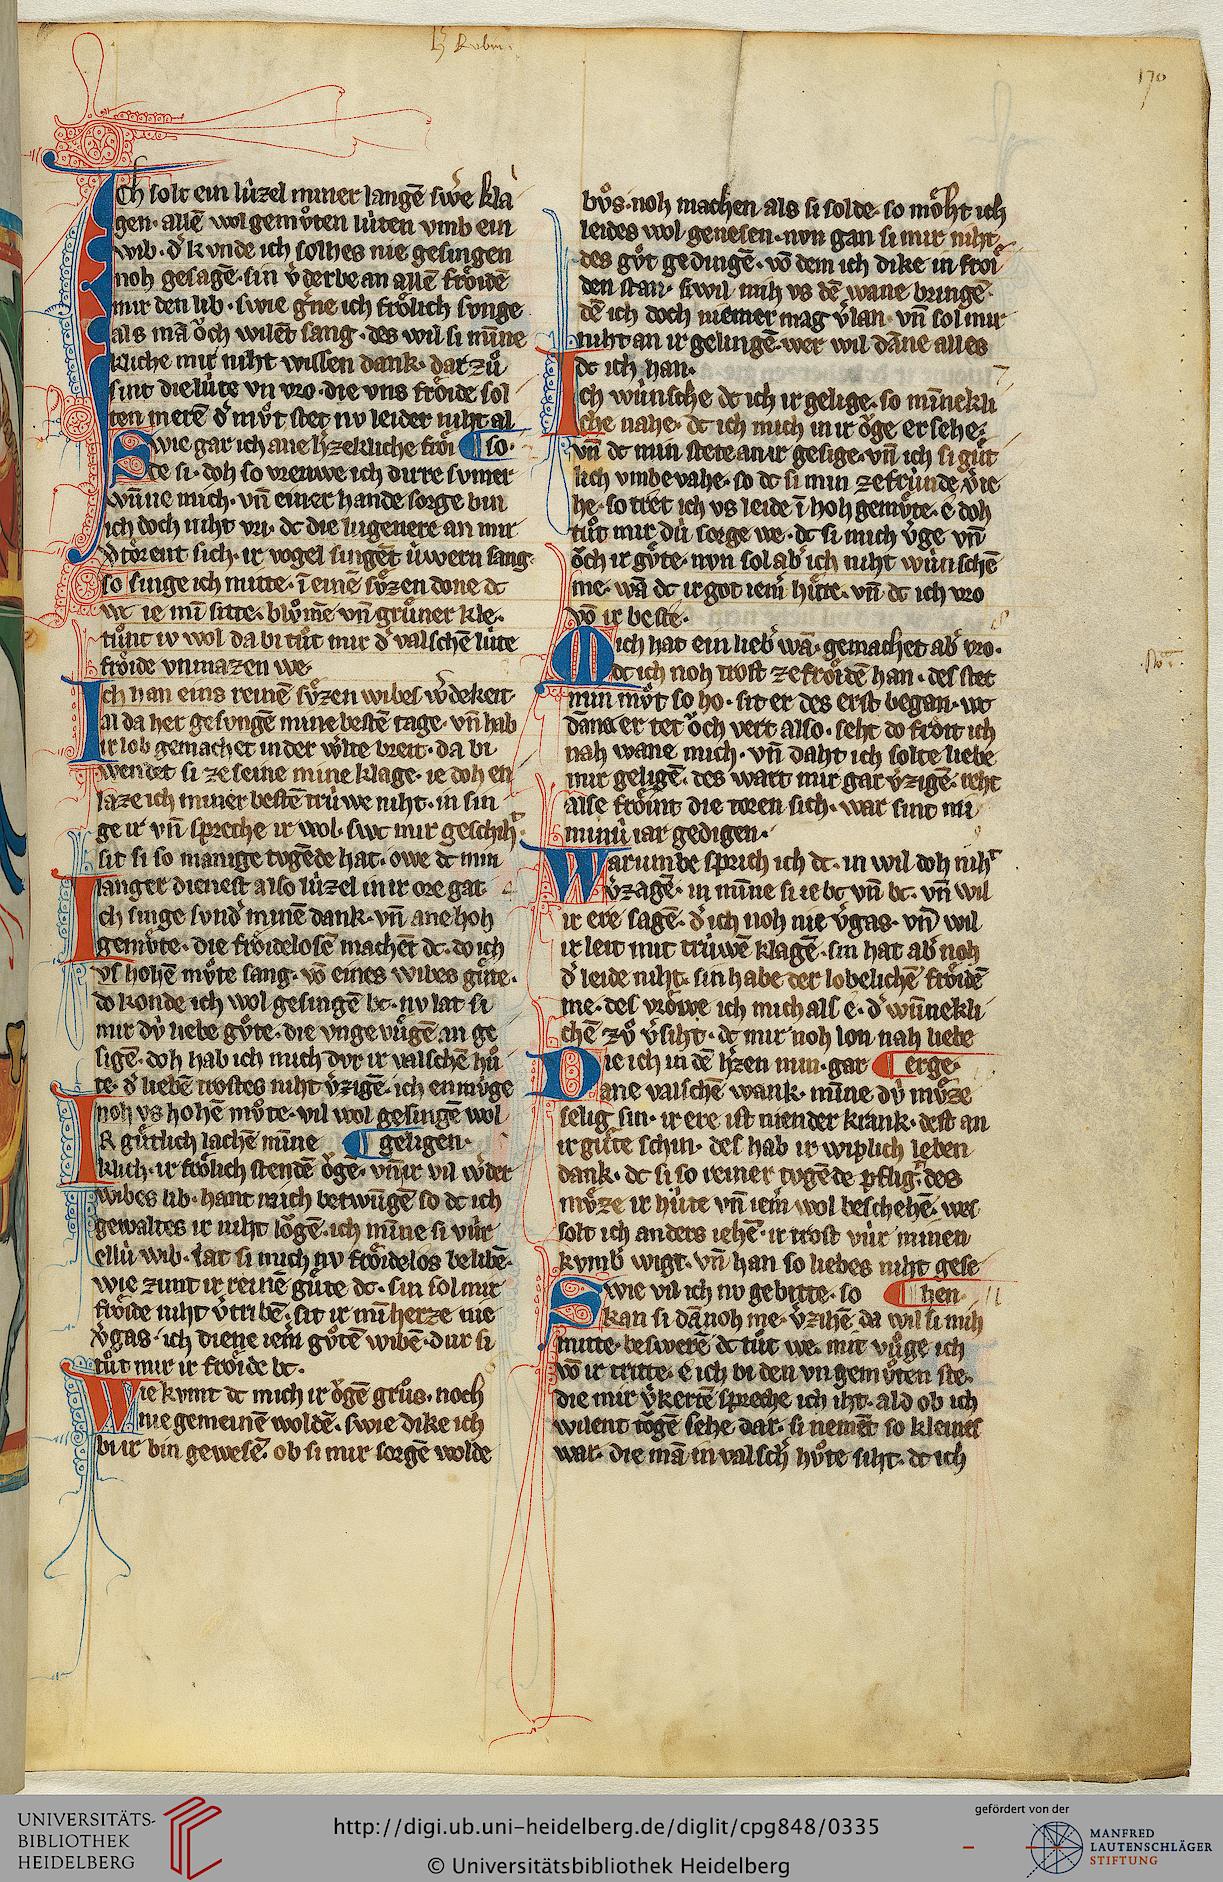 H̾ Rubin.
170
ICh solt ein lúzel miner langē sw̾e kla
gen. allē wol gemuͦten lúten vmb ein
wib. d̾ kvnde ich solhes nie gesingen
noh gesagē. sin v̾derbe an allē froͤidē
mir den lib. swie g̾ne ich froͤlich svnge
als mā oͮch wilēt sang. des wil si mīne
kliche mir niht wissen dank. dar zuͦ
sint die lúte vn vro. die vns froͤide sol
ten merē d̾ muͦt stet nv leider niht al
Swie gar ich ane h̾zekliche froͤi ¶ so.
de si. doh so vreuwe ich dirre svmer
wn̄ne mich. vn̄ einer hande sorge bin
ich doch niht vri. dc die lugenere an mir
d̾toͤrent sich. ir vogel singēt úwern sang.
so singe ich mitte. ī einē suͤzen done dc
wc ie mī sitte. bluͦmē vn̄ gruͤner kle.
tuͦnt iv wol da bi tuͦt mir d̾ valschē lúte
froͤide vnmazen we.
Ich han eins reinē suͤzen wibes w̾dekeit.
al da her gesvngē mine bestē tage. vn̄ hab
ir lob gemachet in der w̾lte breit. da bi
wendet si ze seine mine klage. ie doh en
laze ich miner bestē trúwe niht. in sin
ge ir vn̄ spreche ir wol. swc mir geschiht.
sit si so manige tvgēde hat. owe dc min
langer dienest also lúzel in ir ore gat.
Ich singe svnd̾ minē dank. vn̄ ane hoh
gemuͤte. die froͤidelosē machēt dc. do ich
vs hohē muͦte sang. vō eines wibes guͤte.
do konde ich wol gesingē bc. nv lat si
mir dú liebe guͤte. die vngevuͤgē an ge
sigē. doh hab ich mich dvr ir valschē huͦ
te. d̾ liebē trostes niht v̾zigē. ich enmuͤge
noh vs hohē muͦte. vil wol gesingē wol
Ir guͤtlich lachē mīne ¶ geligen.
klich. ir froͤlich stendē oͮgē. vn̄ ir vil w̾der
wibes lib. hant mich betwūgē so dc ich
gewaltes ir niht loͮgē. ich mīne si vúr
ellú wib. lat si mich nv froͤidelos belibē.
wie zimt ir reinē guͤte dc. sin sol mir
froͤide niht v̾tribē. sit ir mī herze nie
v̾gas. ich diene iem̾ guͦtē wibē. dur si
tuͦt mir ir froͤide bc.
Wie kvmt dc mich ir oͮgē gruͦs. noch
nie gemeinē woldē. swie dike ich
bi ir bin gewesē. ob si mir sorgē wolde
buͦs. noh machen als si solde. so moͤht ich
leides wol genesen. nvn gan si mir niht
des guͦt gedingē. vō dem ich dike in froͤi
den stan. si wil mih vs dē wane bringē.
dē ich doch niemer mag v̾lan. vn̄ sol mir
niht an ir gelingē. wer wil dāne alles
dc ich han.
Ich wúnsche dc ich ir gelige. so mīnekli
che nahe. dc ich mich in ir oͮge ersehe.
vn̄ dc min stete an ir gesige. vn̄ ich si guͤt
lich vmbevahe. so dc si min ze frúnde v̾ie
he. so tret ich vs leide ī hoh gemuͤte. e doh
tuͦt mir dú sorge we. dc si mich v̾ge vn̄
oͮch ir guͤte. nvn sol ab̾ ich niht wúnschē
me. wā dc ir got iem̾ huͤte. vn̄ dc ich vro
vō ir beste.
Mich hat ein lieb̾ wā. gemachet ab̾ vro.
dc ich noh trost ze froͤidē han. des stet
min muͦt so ho. sit er des erst began. wc
dāna er tet oͮch vert also. seht do froͤit ich
nah wane mich. vn̄ daht ich solte liebe
mir geligē. des wart mir gar v̾zigē. reht
alse froͤint die toren sich. war sint mi
minú iar gedigen.
Warumbe sprich ich dc. in wil doh niht
v̾zagē. in mīne si ie bc vn̄ bc. vn̄ wil
ir ere sagē. d̾ ich noh nie v̾gas. vn̄ wil
ir leit mit trúwē klagē. sin hat ab̾ noh
d̾ leide niht. sin habe der lobelichē froͤidē
me. des vroͤwe ich mich als e. d̾ wn̄nekli
chē zuͦ v̾siht. dc mir noh lon nah liebe
Die ich in dē h̾zen min. gar ¶ erge.
ane valschē wank. mīne dú muͤze
selig sin. ir ere ist niender krank. dest an
ir guͤte schin. des hab ir wiplich leben
dank. dc si so reiner tvgēde pfligt. des
muͤze ir húte vn̄ iem̾ wol beschehē. wes
solt ich anders iehē. ir trost vúr minen
kvmb̾ wigt. vn̄ han so liebes niht gese
Swie vil ich nv gebitte. so ¶ hen.
kan si dānoh me. v̾zihē da wil si mih
mitte. beswerē dc tuͦt we. mit vuͦge ich
vō ir tritte. e ich bi den vngemuͦten ste.
die mir v̾kertē spreche ich iht. ald ob ich
wilent toͮgē sehe dar. si nemēt so kleines
war. die mā in valsch̾ huͦte siht. dc ich
UNIVERSITÄTS-
BIBLIOTHEK
HEIDELBERG
http://digi.ub.uni-heidelberg.de/diglit/cpg848/0335
© Universitätsbibliothek Heidelberg
gefördert von der
MANFRED
LAUTENSCHLÄGER
STIFTUNG